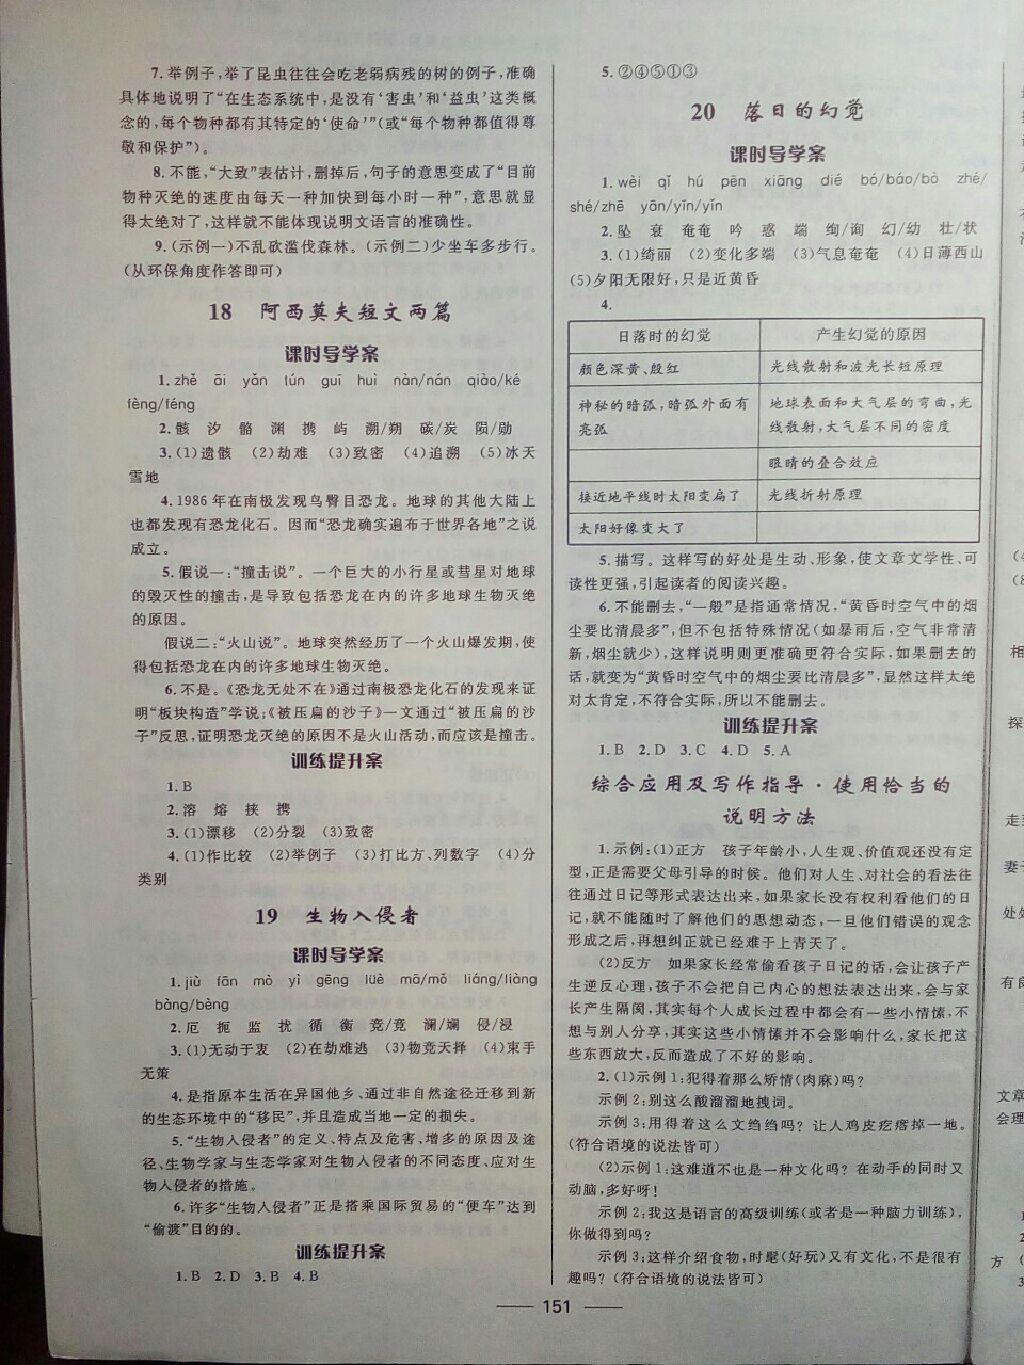 7.举例子,举了昆虫往往会吃老弱病残的树的例子,准确
具体地说明了“在生态系统中,是没有‘害虫’和‘益虫’这类概
念的,每个物种都有其特定的‘使命’”(或“每个物种都值得尊
敬和保护”)。
8.不能,“大致”表估计,删掉后,句子的意思变成了“目前
物种灭绝的速度由每天一种加快到每小时一种”,意思就显
得太绝对了,这样就不能体现说明文语言的准确性。
9.(示例一)不乱砍滥伐森林。(示例二)少坐车多步行。
(从环保角度作答即可)
18 阿西莫夫短文两篇
课时导学案
1.zhě āi yǎn lún guī huì nàn/nán qiào/ké
fèng/féng
2.骸 汐 骼 渊 携 屿 溯/朔 碳/炭 陨/勋
3.(1)遗骸 (2)劫难 (3)致密 (4)追溯 (5)冰天
雪地
4.1986年在南极发现鸟臀目恐龙。地球的其他大陆上
也都发现有恐龙化石。因而“恐龙确实遍布于世界各地”之说
成立。
5.假说一:“撞击说”。一个巨大的小行星或彗星对地球
的毁灭性的撞击,是导致包括恐龙在内的许多地球生物灭绝
的原因。
假说二:“火山说”。地球突然经历了一个火山爆发期,使
得包括恐龙在内的许多地球生物灭绝。
6.不是。《恐龙无处不在》通过南极恐龙化石的发现来证
明“板块构造”学说;《被压扁的沙子》一文通过“被压扁的沙
子”反思,证明恐龙灭绝的原因不是火山活动,而应该是撞击。
训练提升案
1.B
2.溶 熔 挟 携
3.(1)漂移 (2)分裂 (3)致密
4.(1)作比较 (2)举例子 (3)打比方、列数字 (4)分
类别
19 生物入侵者
课时导学案
1.jiù fān mò yì gēng lüè mā/mǒ liáng/liàng
bàng/bèng
2.厄 扼 监 扰 循 衡 竞/竟 澜/斓 侵/浸
3.(1)无动于衷 (2)在劫难逃 (3)物竞天择 (4)束手
无策
4.是指原本生活在异国他乡、通过非自然途径迁移到新
的生态环境中的“移民”,并且造成当地一定的损失。
5.“生物入侵者”的定义、特点及危害、增多的原因及途
径、生物学家与生态学家对生物入侵者的不同态度、应对生
物入侵者的措施。
6.许多“生物入侵者”正是搭乘国际贸易的“便车”达到
“偷渡”目的的。
训练提升案
1.B 2.D 3.B 4.B
5.②④⑤①③
20 落日的幻觉
课时导学案
1.wèi qǐ hú pēn xiāng dié bó/báo/bò zhé/
shé/zhē yān/yīn/yǐn
2.坠 衰 奄奄 吟 惑 端 绚/询 幻/幼 壮/状
3.(1)绮丽 (2)变化多端 (3)气息奄奄 (4)日薄西山
(5)夕阳无限好,只是近黄昏
4.
日落时的幻觉 产生幻觉的原因
颜色深黄、殷红 光线散射和波光长短原理
神秘的暗弧,暗弧外面有 地球表面和大气层的弯曲,光
亮弧 线散射,大气层不同的密度
眼睛的叠合效应
接近地平线时太阳变扁了 光线折射原理
太阳好像变大了
5.描写。这样写的好处是生动、形象,使文章文学性、可
读性更强,引起读者的阅读兴趣。
6.不能删去,“一般”是指通常情况,“黄昏时空气中的烟
尘要比清晨多”,但不包括特殊情况(如暴雨后,空气非常清
新,烟尘就少),这样说明则更准确更符合实际,如果删去的
话,就变为“黄昏时空气中的烟尘要比清晨多”,显然这样太绝
对太肯定,不符合实际,所以不能删去。
训练提升案
1.B 2.D 3.C 4.D 5.A
综合应用及写作指导·使用恰当的
说明方法
1.示例:(1)正方 孩子年龄小,人生观、价值观还没有定
型,正是需要父母引导的时候。他们对人生、对社会的看法往
往通过日记等形式表达出来,如果家长没有权利看他们的日
记,就不能随时了解他们的思想动态,一旦他们错误的观念
形成之后,再想纠正就已经难于上青天了。
(2)反方 如果家长经常偷看孩子日记的话,会让孩子产
生逆反心理,孩子不会把自己内心的想法表达出来,会与家
长产生隔阂,其实每个人成长过程中都会有一些小情愫,不
想与别人分享,其实这些小情愫并不会影响什么,家长把这
些东西放大,反而造成了不好的影响。
2.(1)示例1:犯得着那么矫情(肉麻)吗?
示例2:别这么酸溜溜地拽词。
示例3:用得着这么文绉绉吗?让人鸡皮疙瘩掉一地。
(符合语境的说法皆可)
(2)示例1:这难道不也是一种文化吗?在动手的同时又
动脑,多好呀!
示例2:我这是语言的高级训练(或者是一种脑力训练),
你做得到吗?
示例3:这样介绍食物,时髦(好玩)又有文化,不是很有
趣吗?(符合语境的说法皆可)
151